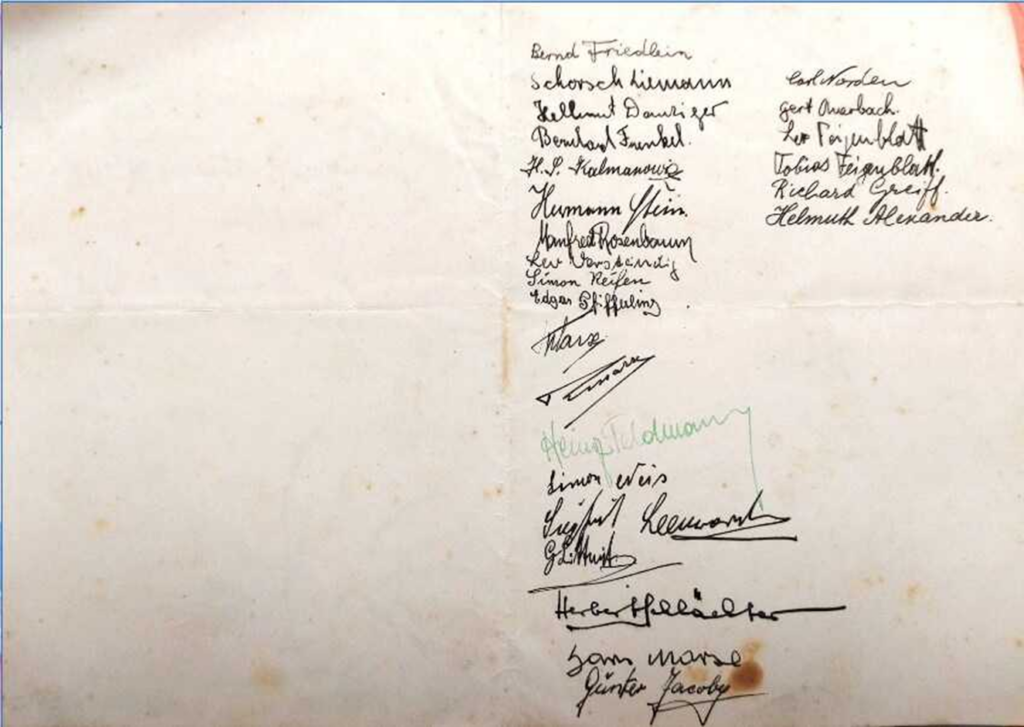 Bernd Friedlein
Schorsch Liemann
Hellmut Danziger
Bernhard Frenkel.
H. S. Kalmanowicz
Hermann Stein.
Manfred Rosenbaum
Leo Verständig
Simon Reifen
Edgar Pfifferling
Marx
Heinz Feldmann
Simon Weis
Siegfried
Herbert Schlächter
Hans Marx
Günter Jacoby
Carl Norden
Gert Auerbach.
Leo Feigenblatt
Tobias Feigenblatt.
Richard Greiff.
Helmuth Alexander.